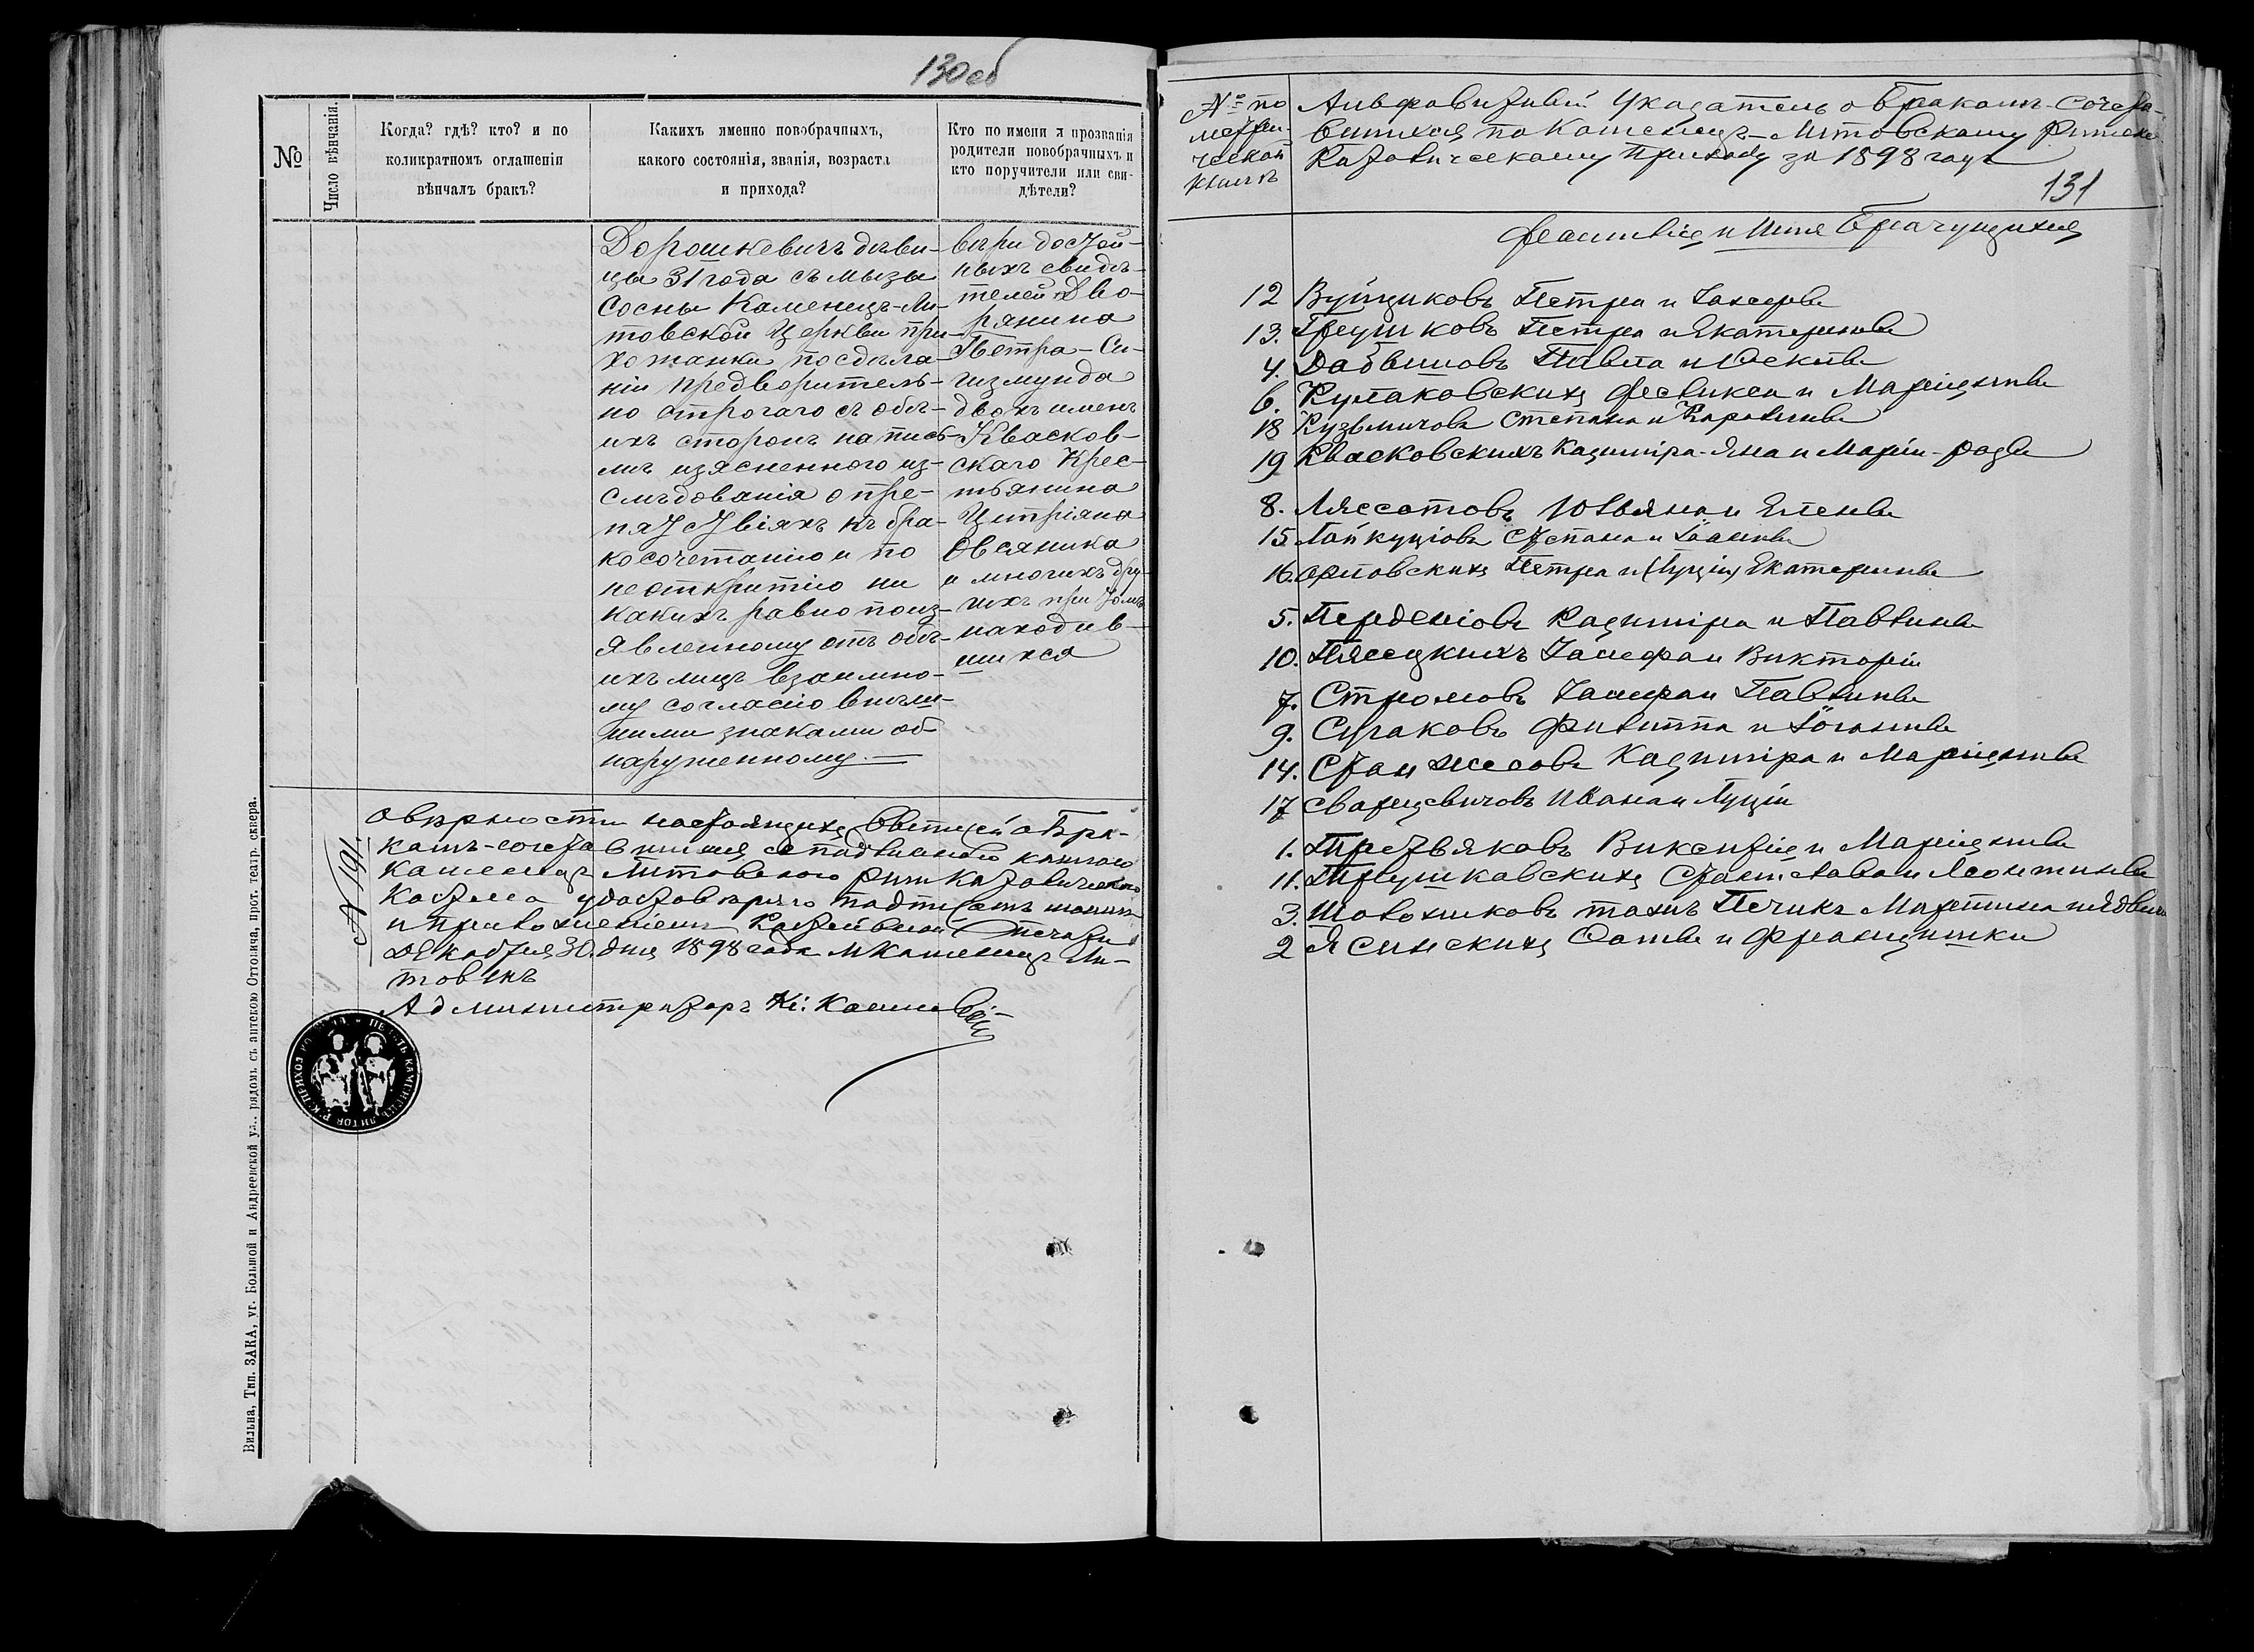 130 об
№
Число вѣнчанія.
Когда? гдѣ? кто? и по
коликратномъ оглашеніи
вѣнчалъ бракъ?
Какихъ именно новобрачныхъ,
какого состоянія, званія, возраста
и прихода?
Кто по имени и прозванія
родители новобрачныхъ и
кто поручители или сви-
дѣтели?
Дорошкевичъ дѣви-
цы 31 года съ мызы
Сосны Каменецъ-Ли-
товской Церкви при-
хожанки по сдѣла-
ніи предворитель-
но строгаго съ обѣ-
ихъ сторонъ на пись-
мѣ изясненного из-
слѣдованія о пре-
пятствіяхъ къ бра-
косочетанію и по
не открытію ни
какихъ равно по из-
явленному отъ обѣ-
ихъ лицъ взаимно-
му согласію внѣш-
ними знаками об-
наруженному
вѣри достой-
ныхъ свидѣ-
телей Дво-
рянина
Петра-Си-
гизмунда
двохъ именъ
Квасков-
скаго Крес-
тьянина
Цитріяна
Овсяника
и многихъ дру-
гихъ при томъ
находив-
шихся
№ 191.
О вѣрности настоящихъ о Бра-
камъ-сочетавшихся
Каменецъ Литовского Рим Католическаго
Костела удостовѣряю подписомъ моимъ
и приложеніемъ Костельной печати
Декабря 30 дня 1898 года М Каменецъ Ли-
товскъ
Администраторъ Кс:
Вильна, Тип. ЗАКА, уг. Большой и Андреевской ул., рядомъ съ аптекою Оттовича, прот. театр. сквера.
№ по
метри-
ческой
книгѣ
Алфавитный Указатель о Бракомъ-Сочета-
вшихся по Каменецъ-Литовскому Римско
Католическому Приходу за 1898 годъ
131
Фамилія и Имя Брачущихся
12 Вуйциковъ Петра и Іозефы
13. Грушковъ Петра и Екатерины
4. Павла и
6. Кулаковскихъ Феликса и Маріянны
18 Кузьмичовъ Степана и Каролины
19 Квасковскихъ Казиміра-Яна и Маріи-Розы
8. Лясотовъ Юльяна и Елены
15. Степана и Іоанны
16. Орловскихъ Петра и (Луціи) Екатерины
5. Казиміра и Павлины
10. Пясецкихъ Іосифа и Викторіи
7. Іосифа и Павлины
9. Филиппа и Іоганны
14. Казиміра и Маріянны
17 Ивана и Луціи
1. Третьяковъ Викентія и Маріянны
11. Трушковскихъ Станислава и Леонтины
3. Шолохиковъ тожъ Печикъ Мартина и Ядвиги
2 Ясинскихъ и Францишки